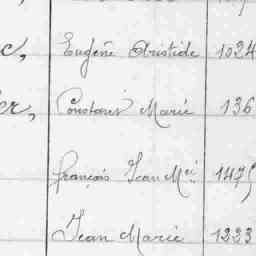 c, Eugène Aristide 1024
er, Constant Marie 136
François Jean Mie 1475
Jean Marie 1223